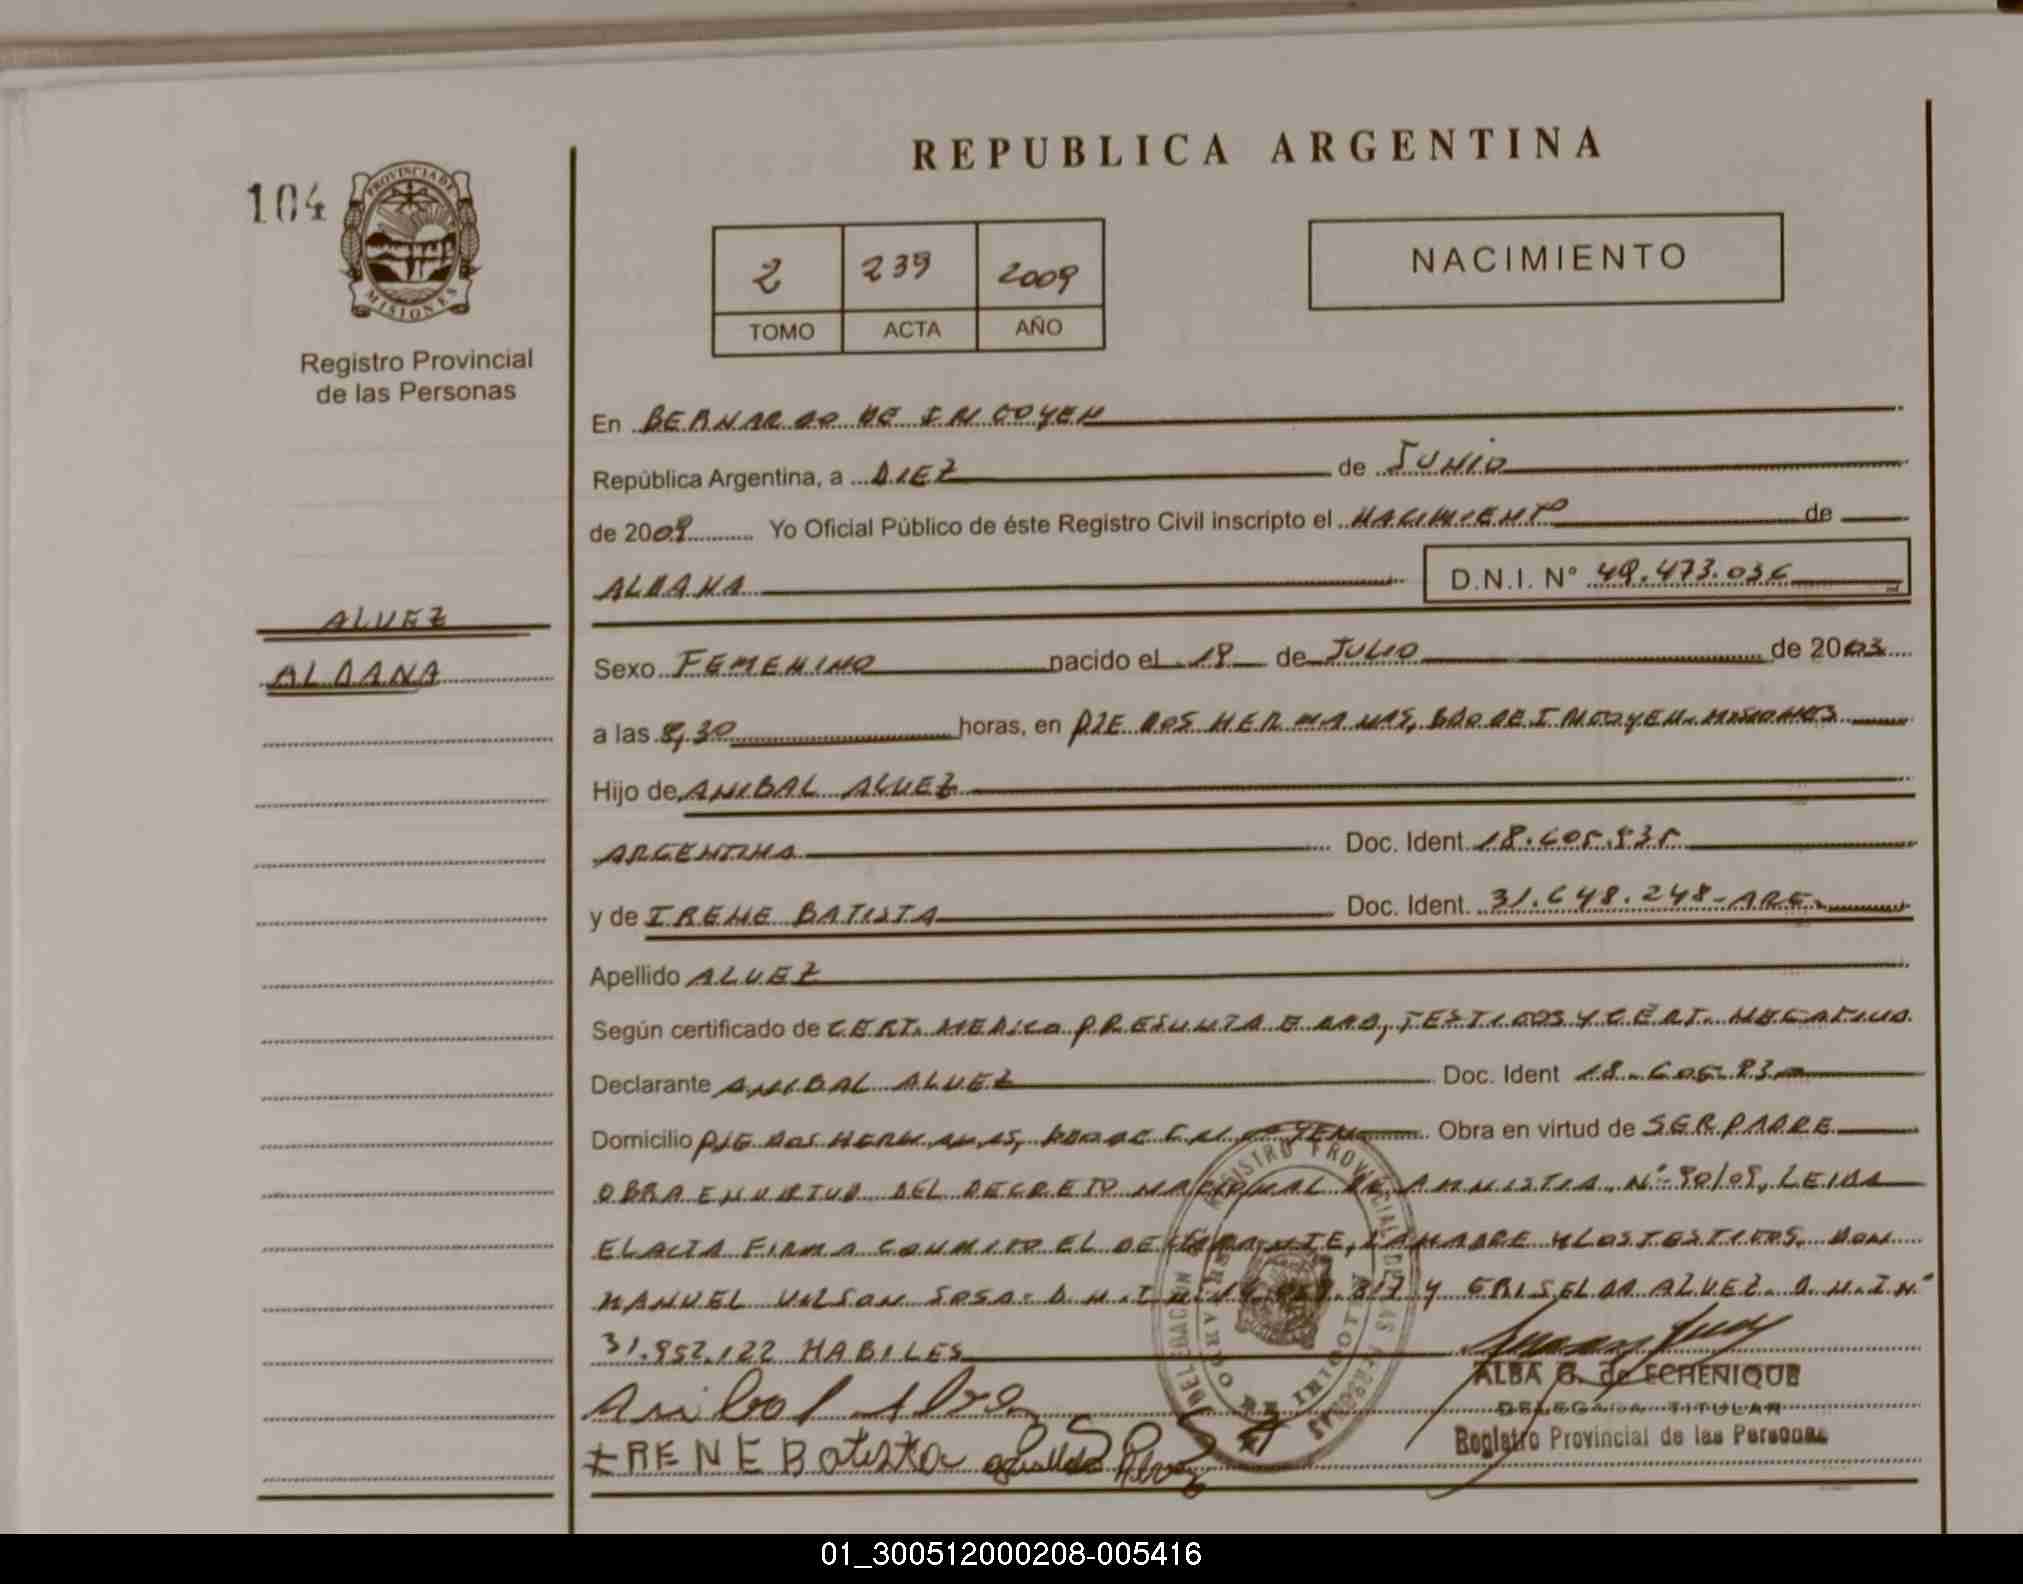 REPUBLICA ARGENTINA
104
PROVINCIA DE
MISIONES
Registro Provincial
de las Personas
2 239 2009
TOMO ACTA AÑO
NACIMIENTO
En BERNARDO DE IRIGOYEN
República Argentina, a DIEZ de JUNIO
de 2009 Yo Oficial Público de éste Registro Civil inscripto el NACIMIENTO de
ALDANA D.N.I. N° 49.473.036
ALVEZ
ALDANA
Sexo FEMENINO nacido el 18 de JULIO de 2003
a las 8,30 horas, en PJE DOS HERMANAS, BDO DE IRIGOYEN. MISIONES
Hijo de ANIBAL ALVEZ
ARGENTINA Doc. Ident. 18.605.835
y de IRENE BATISTA Doc. Ident. 31.648.248- ARG.
Apellido ALVEZ
Según certificado de CERT. MEDICO PRESUNTA EDAD, TESTIGOS Y CERT. NEGATIVO.
Declarante ANIBAL ALVEZ Doc. Ident 18.605.83
Domicilio PJE DOS HERMANAS, BDO DE IRIGOYEN Obra en virtud de SER PADRE
OBRA EN VIRTUD DEL DECRETO NACIONAL DE AMNISTIA N° 90/09, LEIDA
EL ACTA FIRMA CONMIGO EL DECLARANTE, LA MADRE Y LOS TESTIGOS, DON
MANUEL WILSON SOSA- D.N.I. N° Y GRISELDA ALVEZ. D.N.I N°
31.952.122 HABILES
Anibal Alvez
ALBA G. de ECHENIQUE
DELEGADA TITULAR
Registro Provincial de las Personas
IRENE Batista Griselda Alvez
REGISTRO PROVINCIAL DE LAS PERSONAS
DELEGACION
BERNARDO DE IRIGOYEN
01_300512000208-005416